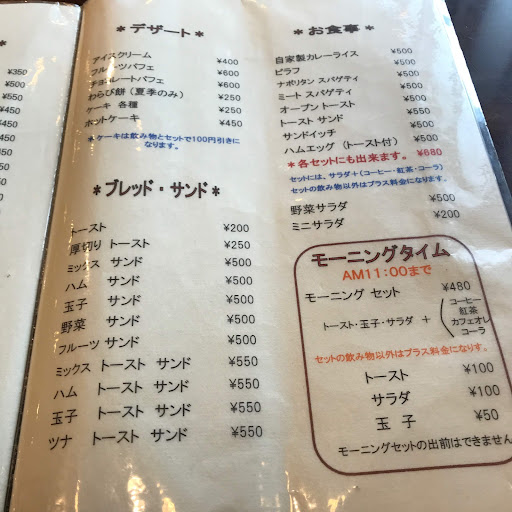 *
¥350
¥500
¥550
¥450
¥450
¥450
¥450
¥450
¥450
* デザート *
アイスクリーム ¥400
フルーツパフェ ¥600
チョコレートパフェ ¥600
わらび餅（夏季のみ） ¥250
ケーキ 各種 ¥250
ホットケーキ ¥450
*ケーキは飲み物とセットで100円引きに
なります。
*ブレッド・サンド*
トースト ¥200
厚切り トースト ¥250
ミックス サンド ¥500
ハム サンド ¥500
玉子 サンド ¥500
野菜 サンド ¥500
フルーツ サンド ¥500
ミックス トースト サンド ¥550
ハム トースト サンド ¥550
玉子 トースト サンド ¥550
ツナ トースト サンド ¥550
* お食事 *
自家製カレーライス ¥500
ピラフ ¥500
ナポリタン スパゲティ ¥500
ミート スパゲティ ¥500
オープン トースト ¥500
トースト サンド ¥500
サンドイッチ ¥500
ハムエッグ（トースト付） ¥500
*各セットにも出来ます。 ¥680
セットには、サラダ＋（コーヒー・紅茶・コーラ）
セットの飲み物以外はプラス料金になります。
野菜サラダ ¥500
ミニサラダ ¥200
モーニングタイム
AM11:00まで
モーニング セット ¥480
トースト・玉子・サラダ ＋ （コーヒー
紅茶
カフェオレ
コーラ
セットの飲み物以外はプラス料金になりす。
トースト ¥100
サラダ ¥100
玉 子 ¥50
モーニングセットの出前はできません